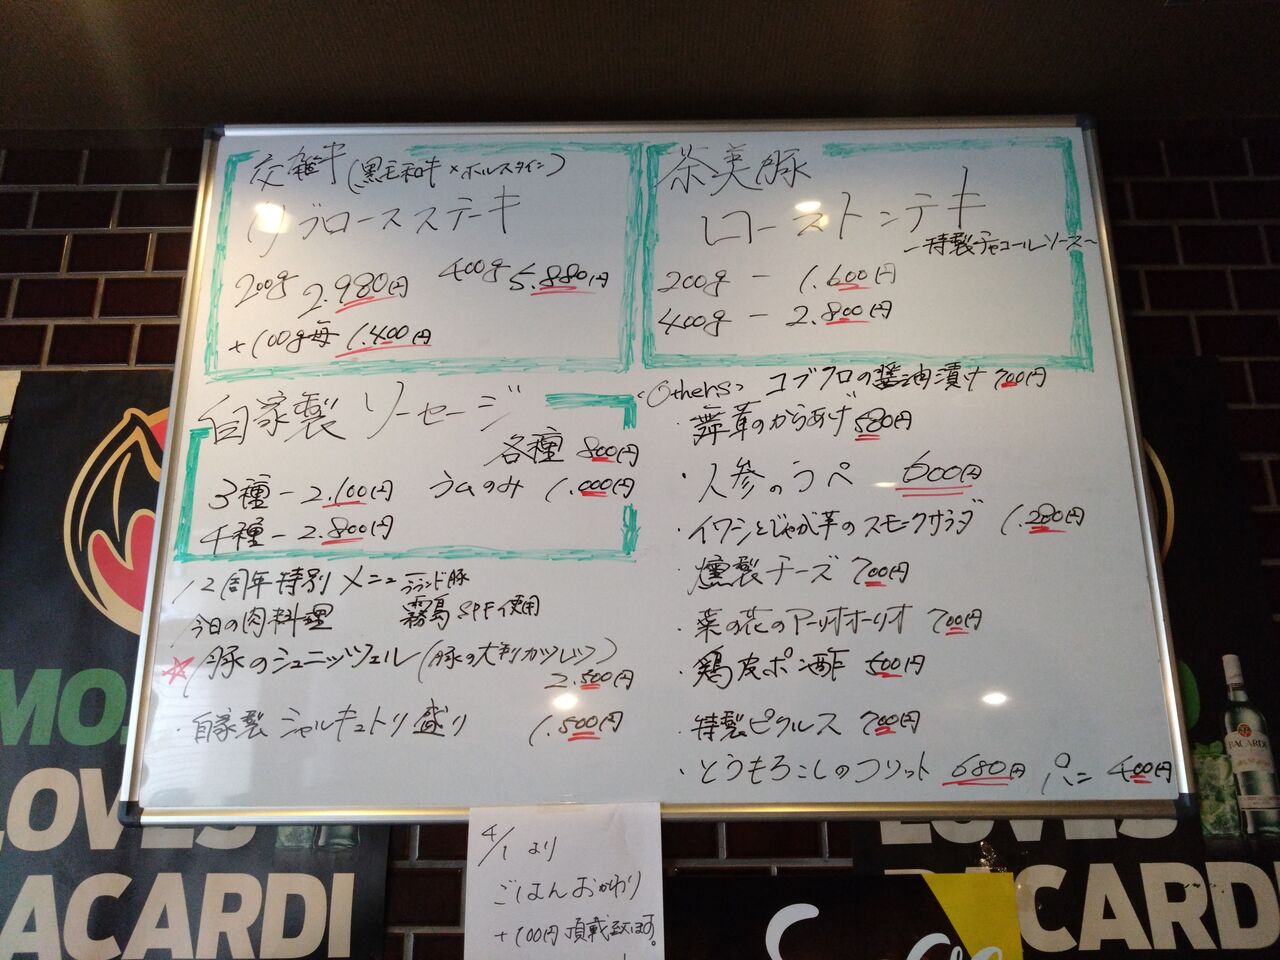 交雑牛(黒毛和牛×ホルスタイン)
リブロースステーキ
200g 2.980円 400g 5.880円
+100g毎 1.400円
茶美豚
ローストンテキ
〜特製チャコールソース〜
200g ー 1.600円
400g ー 2.800円
自家製ソーセージ
各種 800円
3種ー2.100円 ラムのみ 1.000円
4種ー2.800円
12周年特別メニュー
今日の肉料理
ブランド豚
霧島SPF使用
☆豚のシュニッツェル(豚の大判カツレツ)
2.500円
・自家製シャルキュトリ盛り 1.500円
〈Others〉 コブクロの醤油漬け 700円
・舞茸のからあげ 580円
・人参のラペ 600円
・イワシとじゃが芋のスモークサラダ 1.280円
・燻製チーズ 700円
・菜の花のアーリオオーリオ 700円
・鶏皮ポン酢 500円
・特製ピクルス 700円
・とうもろこしのフリット 680円 パン 400円
4/1より
ごはんおかわり
+100円頂戴致します。
MO
LOVES
BACARDI
LOVES
BACARDI
BACARDI